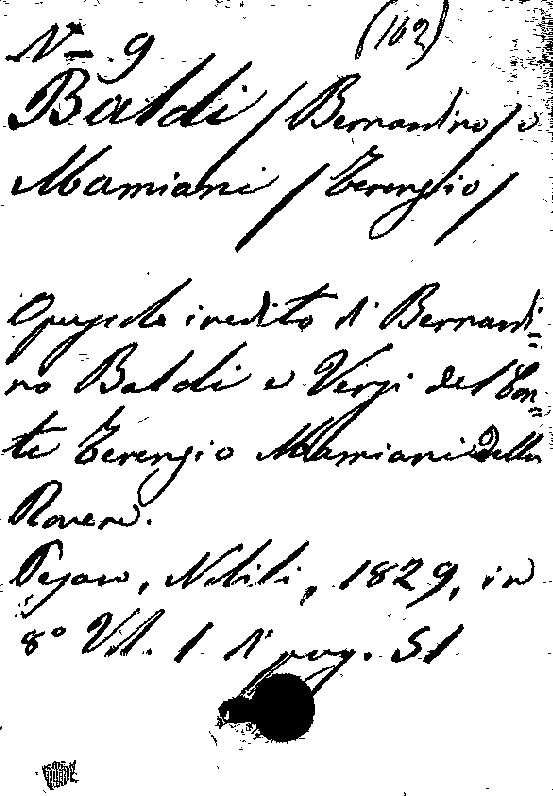 N.º 9 (163)
Baldi / Bernardino / e
Mamiani / Terenzio /
Opuscolo inedito di Bernardi=
no Baldi e Versi del Con=
te Terenzio Mamiani della
Rovere.
Pesaro, Nobili, 1829, in
8º Vol. 1 di pag. 51